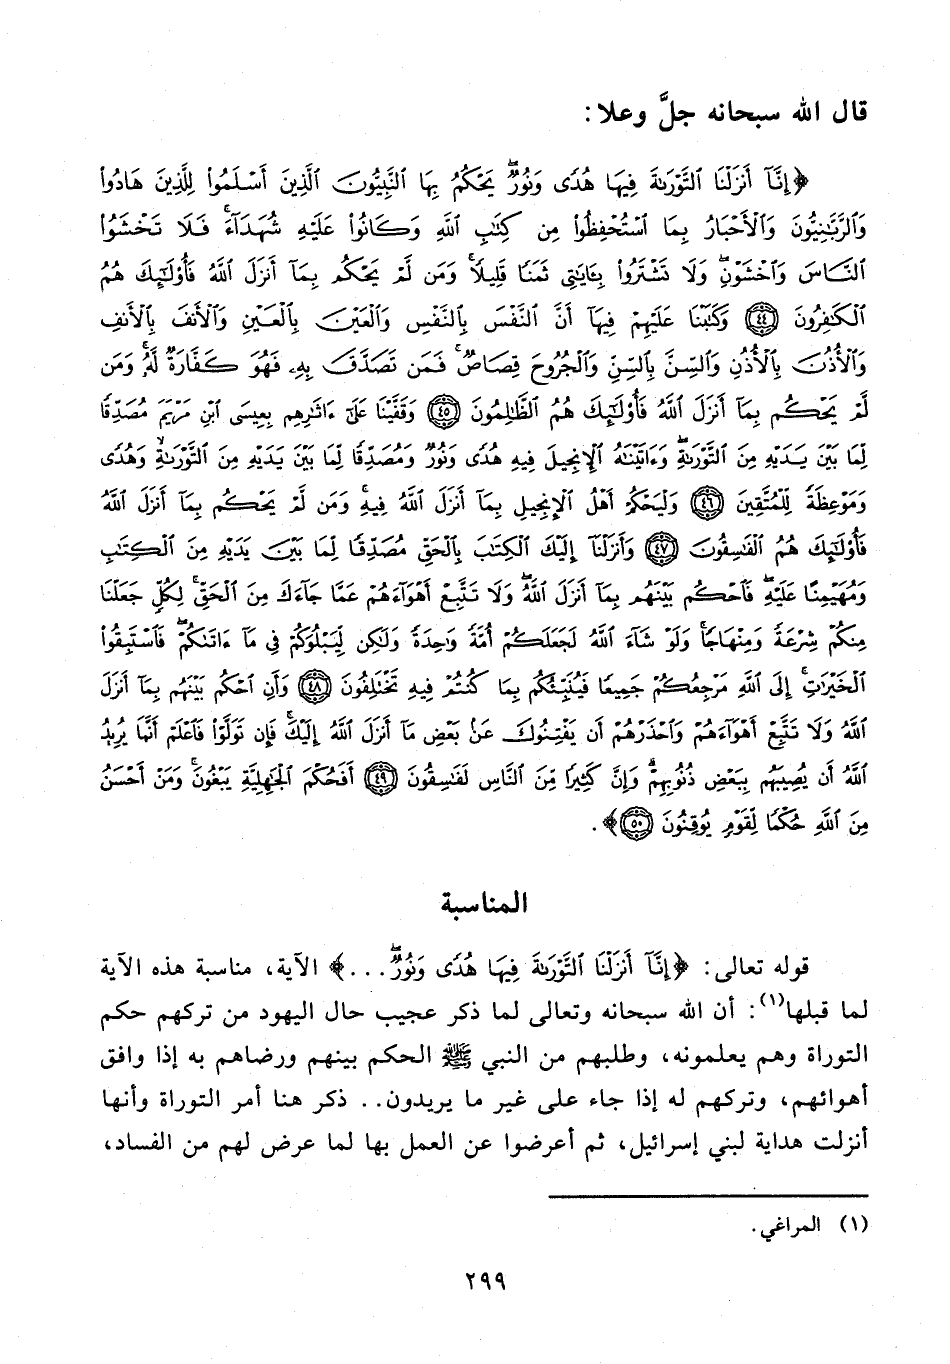 قال الله سبحانه جلَّ وعلا:
﴿إِنَّآ أَنزَلْنَا ٱلتَّوْرَىٰةَ فِيهَا هُدًى وَنُورٌ ۚ يَحْكُمُ بِهَا ٱلنَّبِيُّونَ ٱلَّذِينَ أَسْلَمُوا۟ لِلَّذِينَ هَادُوا۟
وَٱلرَّبَّٰنِيُّونَ وَٱلْأَحْبَارُ بِمَا ٱسْتُحْفِظُوا۟ مِن كِتَٰبِ ٱللَّهِ وَكَانُوا۟ عَلَيْهِ شُهَدَآءَ ۚ فَلَا تَخْشَوُا۟
ٱلنَّاسَ وَٱخْشَوْنِ ۚ وَلَا تَشْتَرُوا۟ بِـَٔايَٰتِى ثَمَنًا قَلِيلًا ۚ وَمَن لَّمْ يَحْكُم بِمَآ أَنزَلَ ٱللَّهُ فَأُو۟لَٰٓئِكَ هُمُ
ٱلْكَٰفِرُونَ ٤٤ وَكَتَبْنَا عَلَيْهِمْ فِيهَآ أَنَّ ٱلنَّفْسَ بِٱلنَّفْسِ وَٱلْعَيْنَ بِٱلْعَيْنِ وَٱلْأَنفَ بِٱلْأَنفِ
وَٱلْأُذُنَ بِٱلْأُذُنِ وَٱلسِّنَّ بِٱلسِّنِّ وَٱلْجُرُوحَ قِصَاصٌ ۚ فَمَن تَصَدَّقَ بِهِۦ فَهُوَ كَفَّارَةٌ لَّهُۥ ۚ وَمَن
لَّمْ يَحْكُم بِمَآ أَنزَلَ ٱللَّهُ فَأُو۟لَٰٓئِكَ هُمُ ٱلظَّٰلِمُونَ ٤٥ وَقَفَّيْنَا عَلَىٰٓ ءَاثَٰرِهِم بِعِيسَى ٱبْنِ مَرْيَمَ مُصَدِّقًا
لِّمَا بَيْنَ يَدَيْهِ مِنَ ٱلتَّوْرَىٰةِ ۖ وَءَاتَيْنَٰهُ ٱلْإِنجِيلَ فِيهِ هُدًى وَنُورٌ وَمُصَدِّقًا لِّمَا بَيْنَ يَدَيْهِ مِنَ ٱلتَّوْرَىٰةِ وَهُدًى
وَمَوْعِظَةً لِّلْمُتَّقِينَ ٤٦ وَلْيَحْكُمْ أَهْلُ ٱلْإِنجِيلِ بِمَآ أَنزَلَ ٱللَّهُ فِيهِ ۚ وَمَن لَّمْ يَحْكُم بِمَآ أَنزَلَ ٱللَّهُ
فَأُو۟لَٰٓئِكَ هُمُ ٱلْفَٰسِقُونَ ٤٧ وَأَنزَلْنَآ إِلَيْكَ ٱلْكِتَٰبَ بِٱلْحَقِّ مُصَدِّقًا لِّمَا بَيْنَ يَدَيْهِ مِنَ ٱلْكِتَٰبِ
وَمُهَيْمِنًا عَلَيْهِ ۖ فَٱحْكُم بَيْنَهُم بِمَآ أَنزَلَ ٱللَّهُ ۖ وَلَا تَتَّبِعْ أَهْوَآءَهُمْ عَمَّا جَآءَكَ مِنَ ٱلْحَقِّ ۚ لِكُلٍّ جَعَلْنَا
مِنكُمْ شِرْعَةً وَمِنْهَاجًا ۚ وَلَوْ شَآءَ ٱللَّهُ لَجَعَلَكُمْ أُمَّةً وَٰحِدَةً وَلَٰكِن لِّيَبْلُوَكُمْ فِى مَآ ءَاتَىٰكُمْ ۖ فَٱسْتَبِقُوا۟
ٱلْخَيْرَٰتِ ۚ إِلَى ٱللَّهِ مَرْجِعُكُمْ جَمِيعًا فَيُنَبِّئُكُم بِمَا كُنتُمْ فِيهِ تَخْتَلِفُونَ ٤٨ وَأَنِ ٱحْكُم بَيْنَهُم بِمَآ أَنزَلَ
ٱللَّهُ وَلَا تَتَّبِعْ أَهْوَآءَهُمْ وَٱحْذَرْهُمْ أَن يَفْتِنُوكَ عَنۢ بَعْضِ مَآ أَنزَلَ ٱللَّهُ إِلَيْكَ ۖ فَإِن تَوَلَّوْا۟ فَٱعْلَمْ أَنَّمَا يُرِيدُ
ٱللَّهُ أَن يُصِيبَهُم بِبَعْضِ ذُنُوبِهِمْ ۗ وَإِنَّ كَثِيرًا مِّنَ ٱلنَّاسِ لَفَٰسِقُونَ ٤٩ أَفَحُكْمَ ٱلْجَٰهِلِيَّةِ يَبْغُونَ ۚ وَمَنْ أَحْسَنُ
مِنَ ٱللَّهِ حُكْمًا لِّقَوْمٍ يُوقِنُونَ ٥٠﴾.
المناسبة
قوله تعالى: ﴿إِنَّآ أَنزَلْنَا ٱلتَّوْرَىٰةَ فِيهَا هُدًى وَنُورٌ ۚ...﴾ الآية، مناسبة هذه الآية
لما قبلها(١): أن الله سبحانه وتعالى لما ذكر عجيب حال اليهود من تركهم حكم
التوراة وهم يعلمونه، وطلبهم من النبي ﷺ الحكم بينهم ورضاهم به إذا وافق
أهوائهم، وتركهم له إذا جاء على غير ما يريدون.. ذكر هنا أمر التوراة وأنها
أنزلت هداية لبني إسرائيل، ثم أعرضوا عن العمل بها لما عرض لهم من الفساد،
(١) المراغي.
٢٩٩